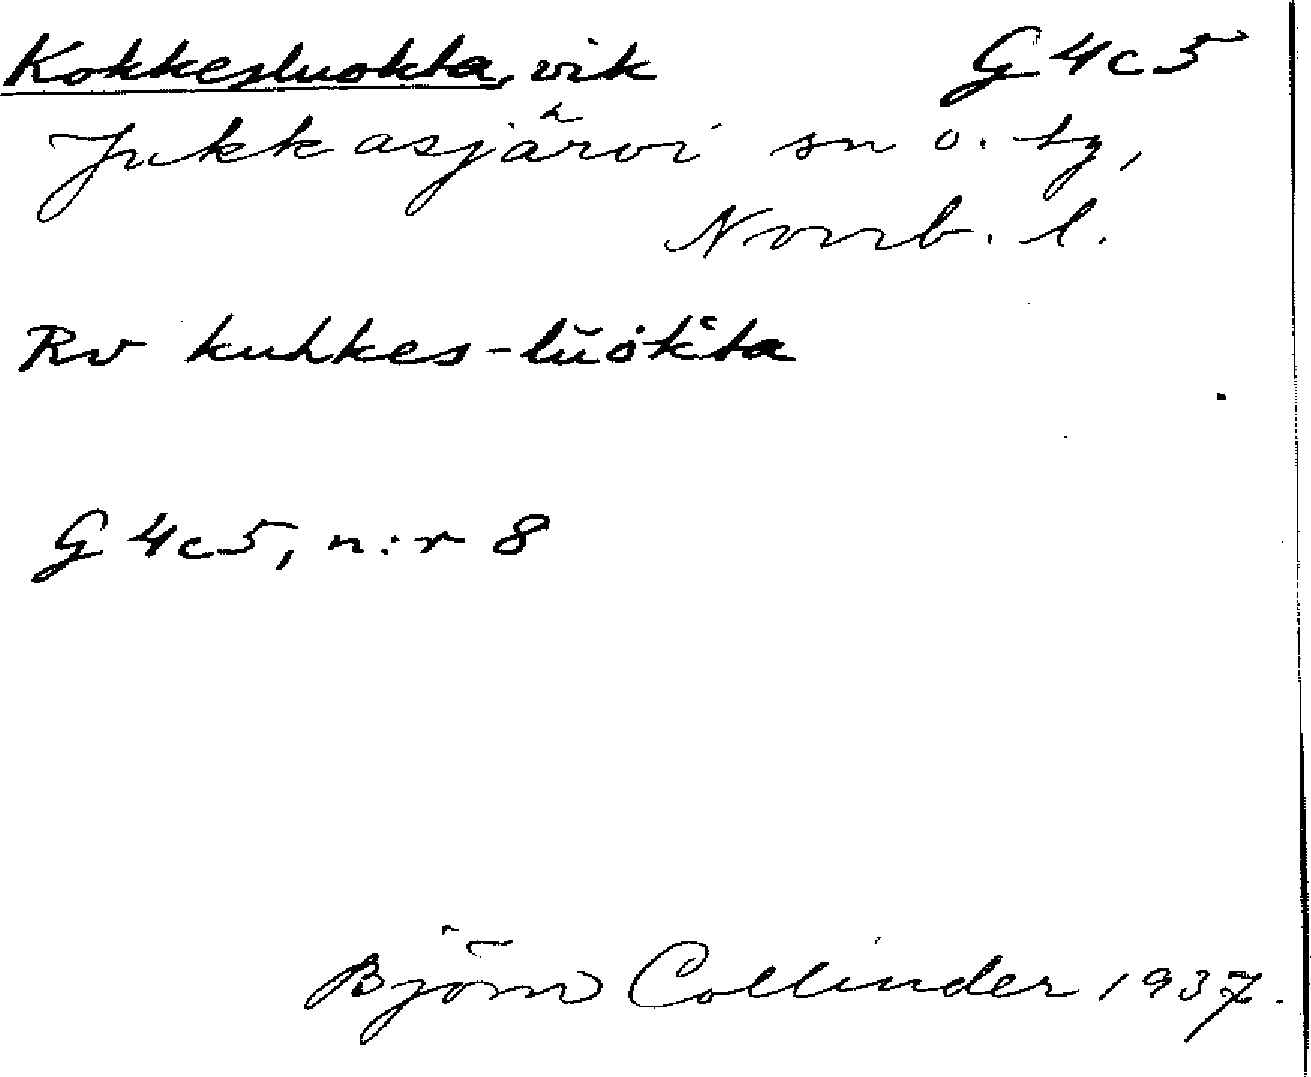 Kokkesluokta, vik G4c5
Jukkasjärvi sn o. tg,
Norrb. l.
Rv kuhkes-lŭȯk̔ta
G4c5, n:r 8
Björn Collinder 1937.